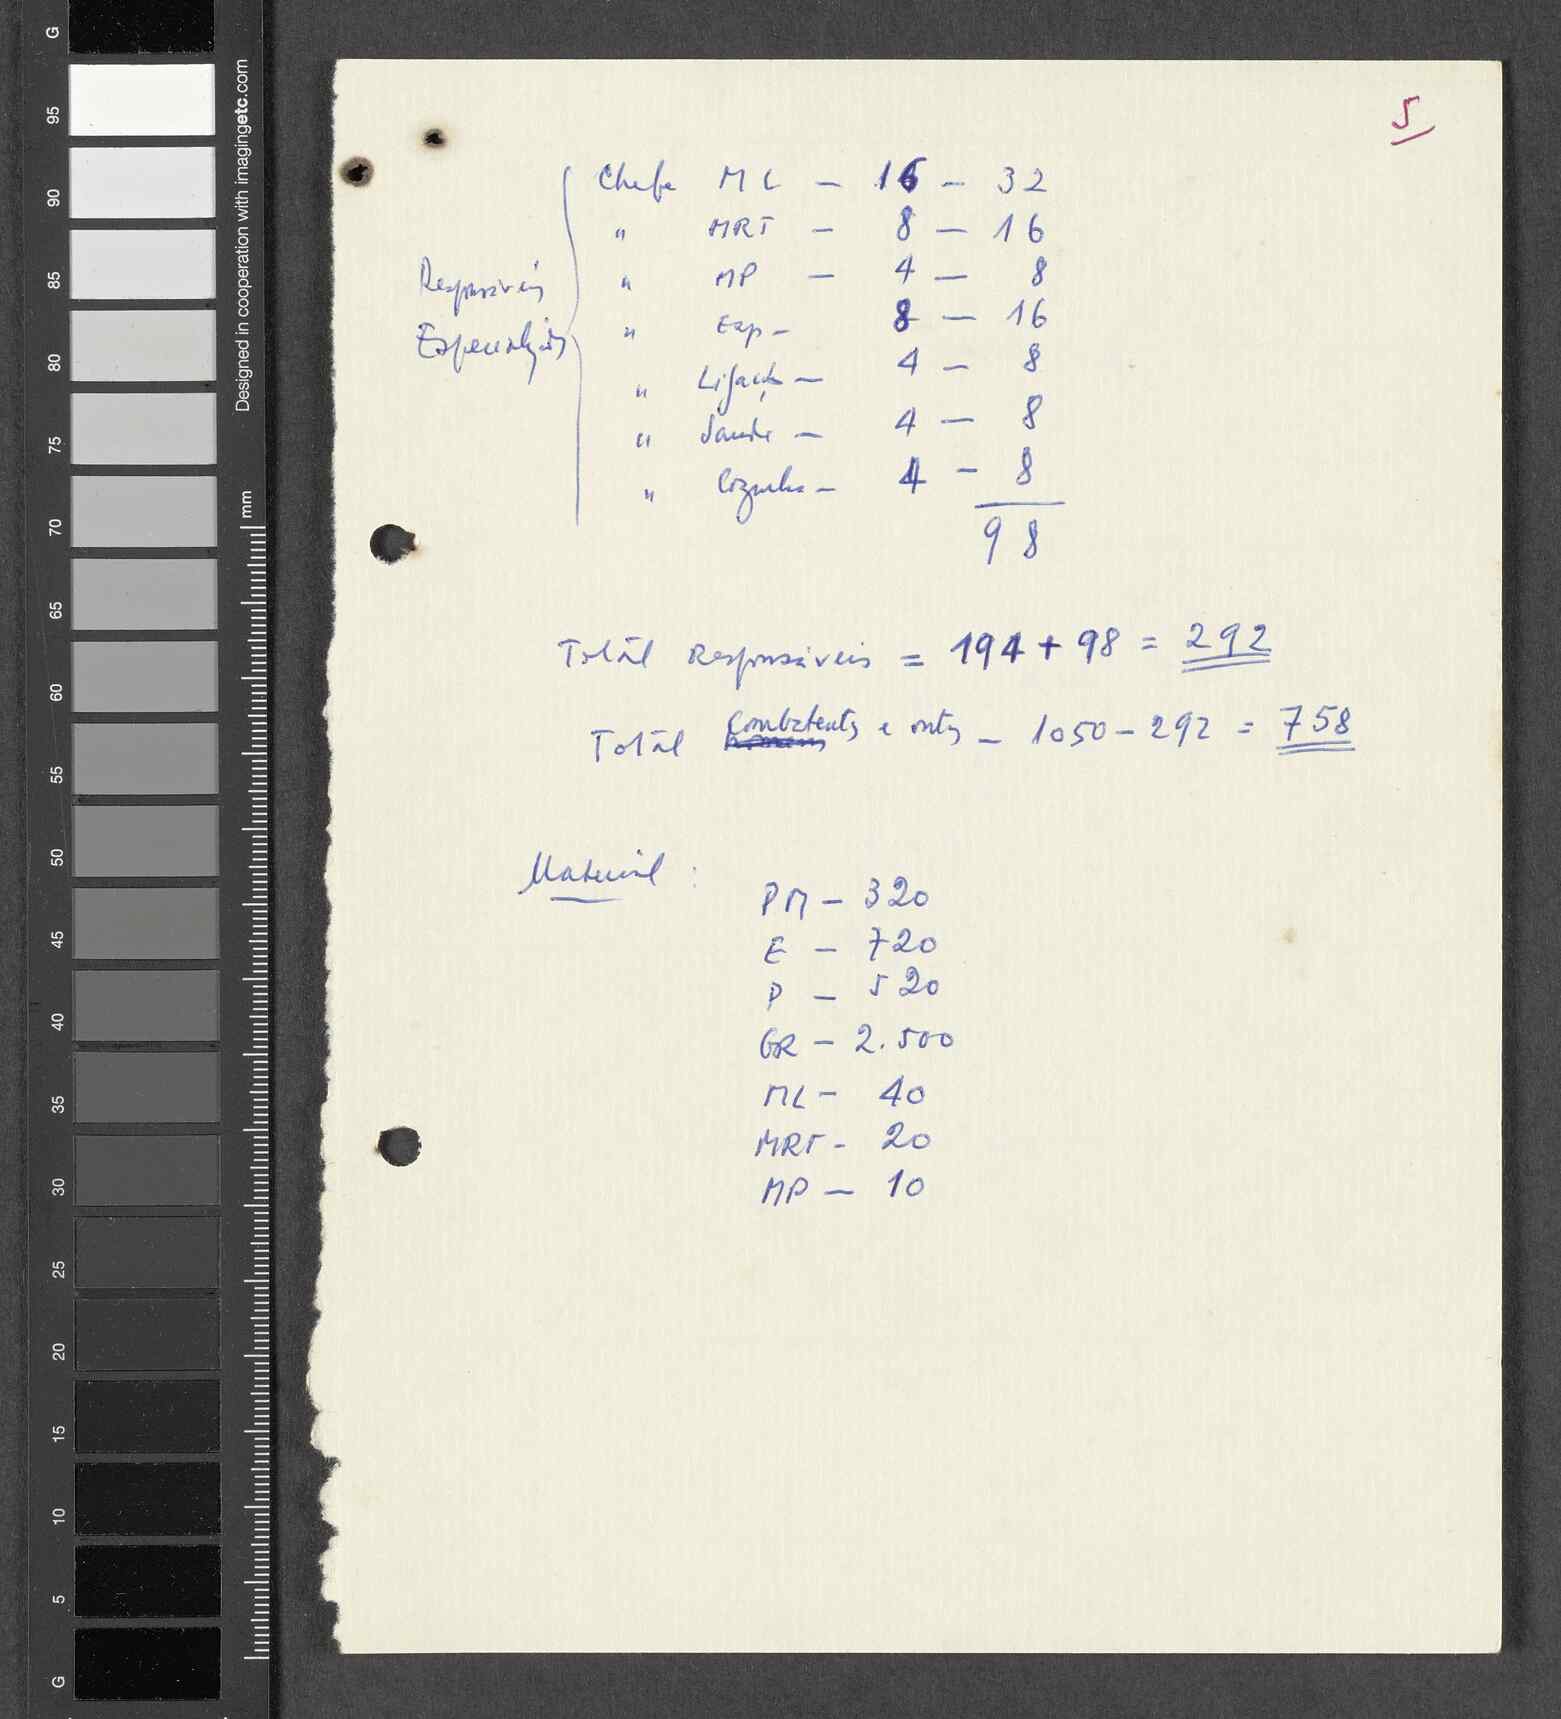 5
Chefe ML — 16 — 32
" MRT — 8 — 16
Responsáveis " MP — 4 — 8
" Exp — 8 — 16
Especializados
" Ligação — 4 — 8
" Saúde — 4 — 8
" Cozinha — 4 — 8
98
Totál Responsáveis = 194 + 98 = 292
Totál combatentes e outros — 1050 - 292 = 758
Material :
PM — 320
E — 720
P — 520
GR — 2.500
ML — 40
MRT - 20
MP — 10
G
95
90
85
80
75
70
65
60
55
50
45
40
35
30
25
20
15
10
5
G
Designed in cooperation with imagingetc.com
mm